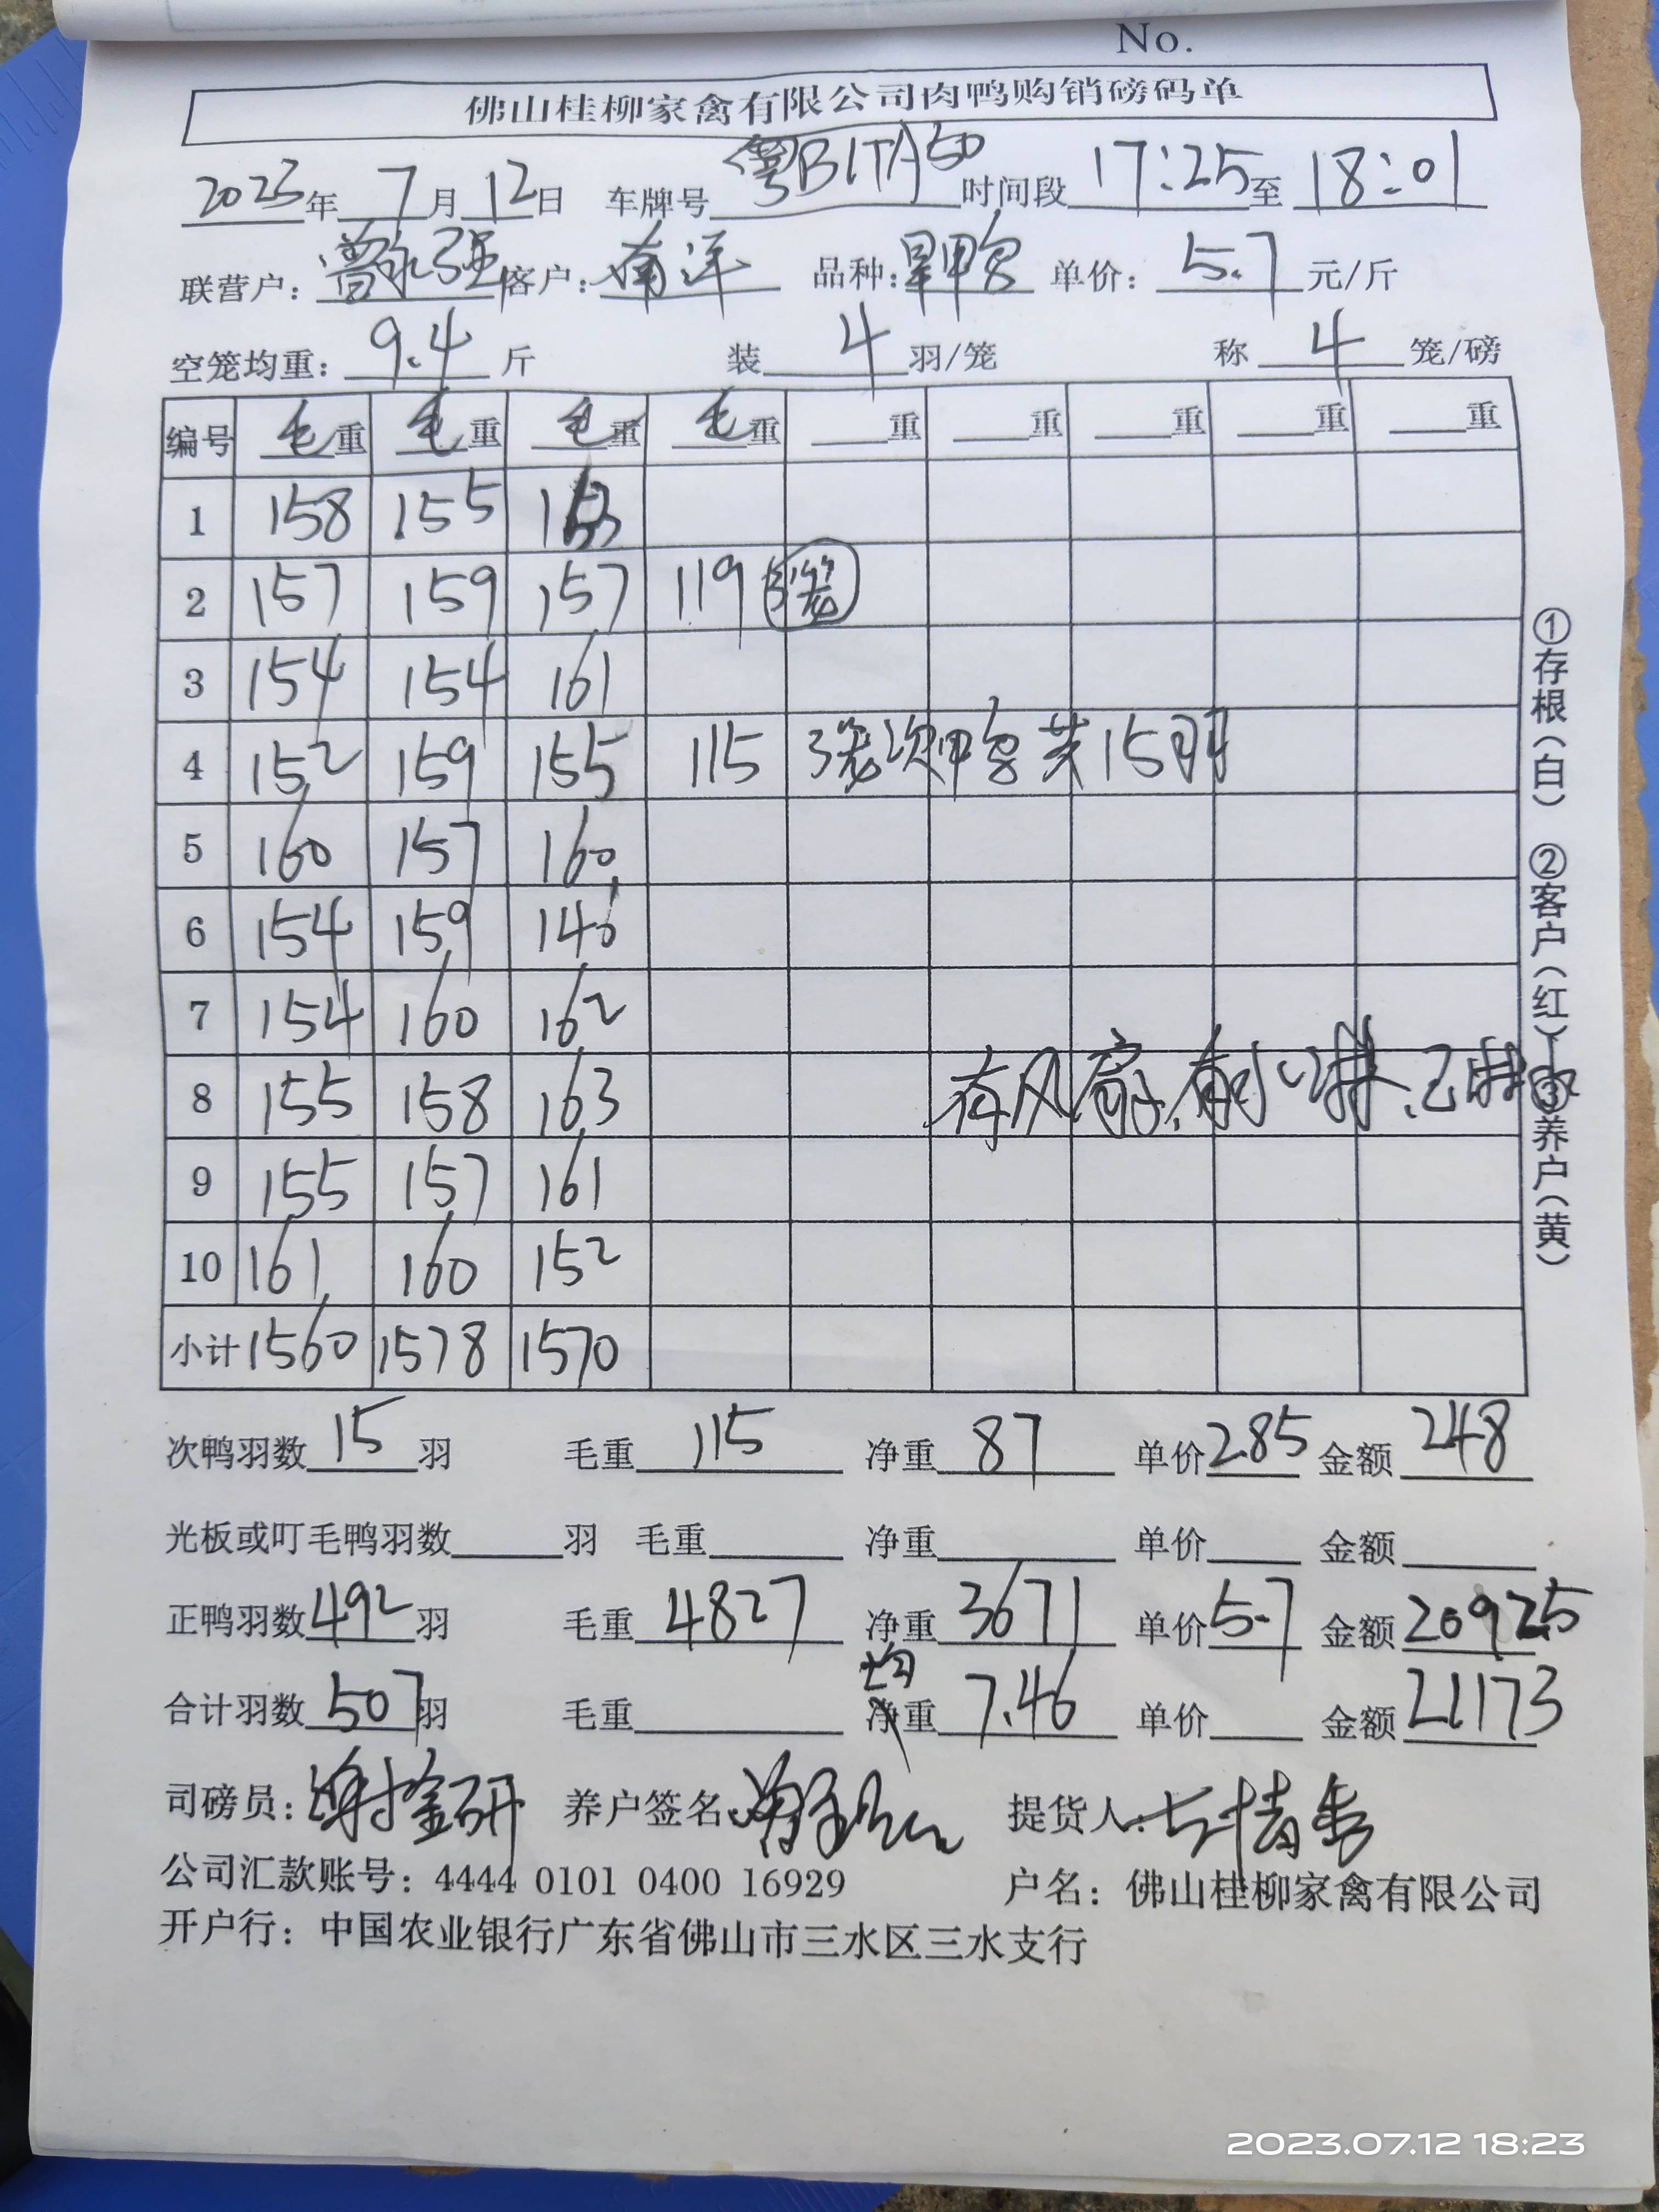 No.
佛山桂柳家禽有限公司肉鸭购销磅码单
2023年 7月 12日 车牌号 粤B1TA50 时间段 17:25 至 18:01
联营户: 曾永强 客户: 南洋 品种: 旱鸭 单价: 5.7 元/斤
空笼均重: 9.4 斤 装 4 羽/笼 称 4 笼/磅
编号 毛重 毛重 毛重 毛重 重 重 重 重 重
1 158 155 153
2 157 159 157 119 (3笼)
3 154 154 161
4 152 159 155 115 3笼次鸭共15羽
5 160 157 160
6 154 159 146
7 154 160 162
8 155 158 163 有风扇、有水
9 155 157 161
10 161 160 152
小计 1560 1578 1570
次鸭羽数 15 羽 毛重 115 净重 87 单价 2.85 金额 248
光板或叮毛鸭羽数 羽 毛重 净重 单价 金额
正鸭羽数 492 羽 毛重 4827 净重 3671 单价 5.7 金额 20925
合计羽数 507 羽 毛重 均重 7.46 单价 金额 21173
司磅员: 养户签名 提货人:
公司汇款账号: 4444 0101 0400 16929 户名: 佛山桂柳家禽有限公司
开户行: 中国农业银行广东省佛山市三水区三水支行
①存根(白) ②客户(红) ③养户(黄)
2023.07.12 18:23